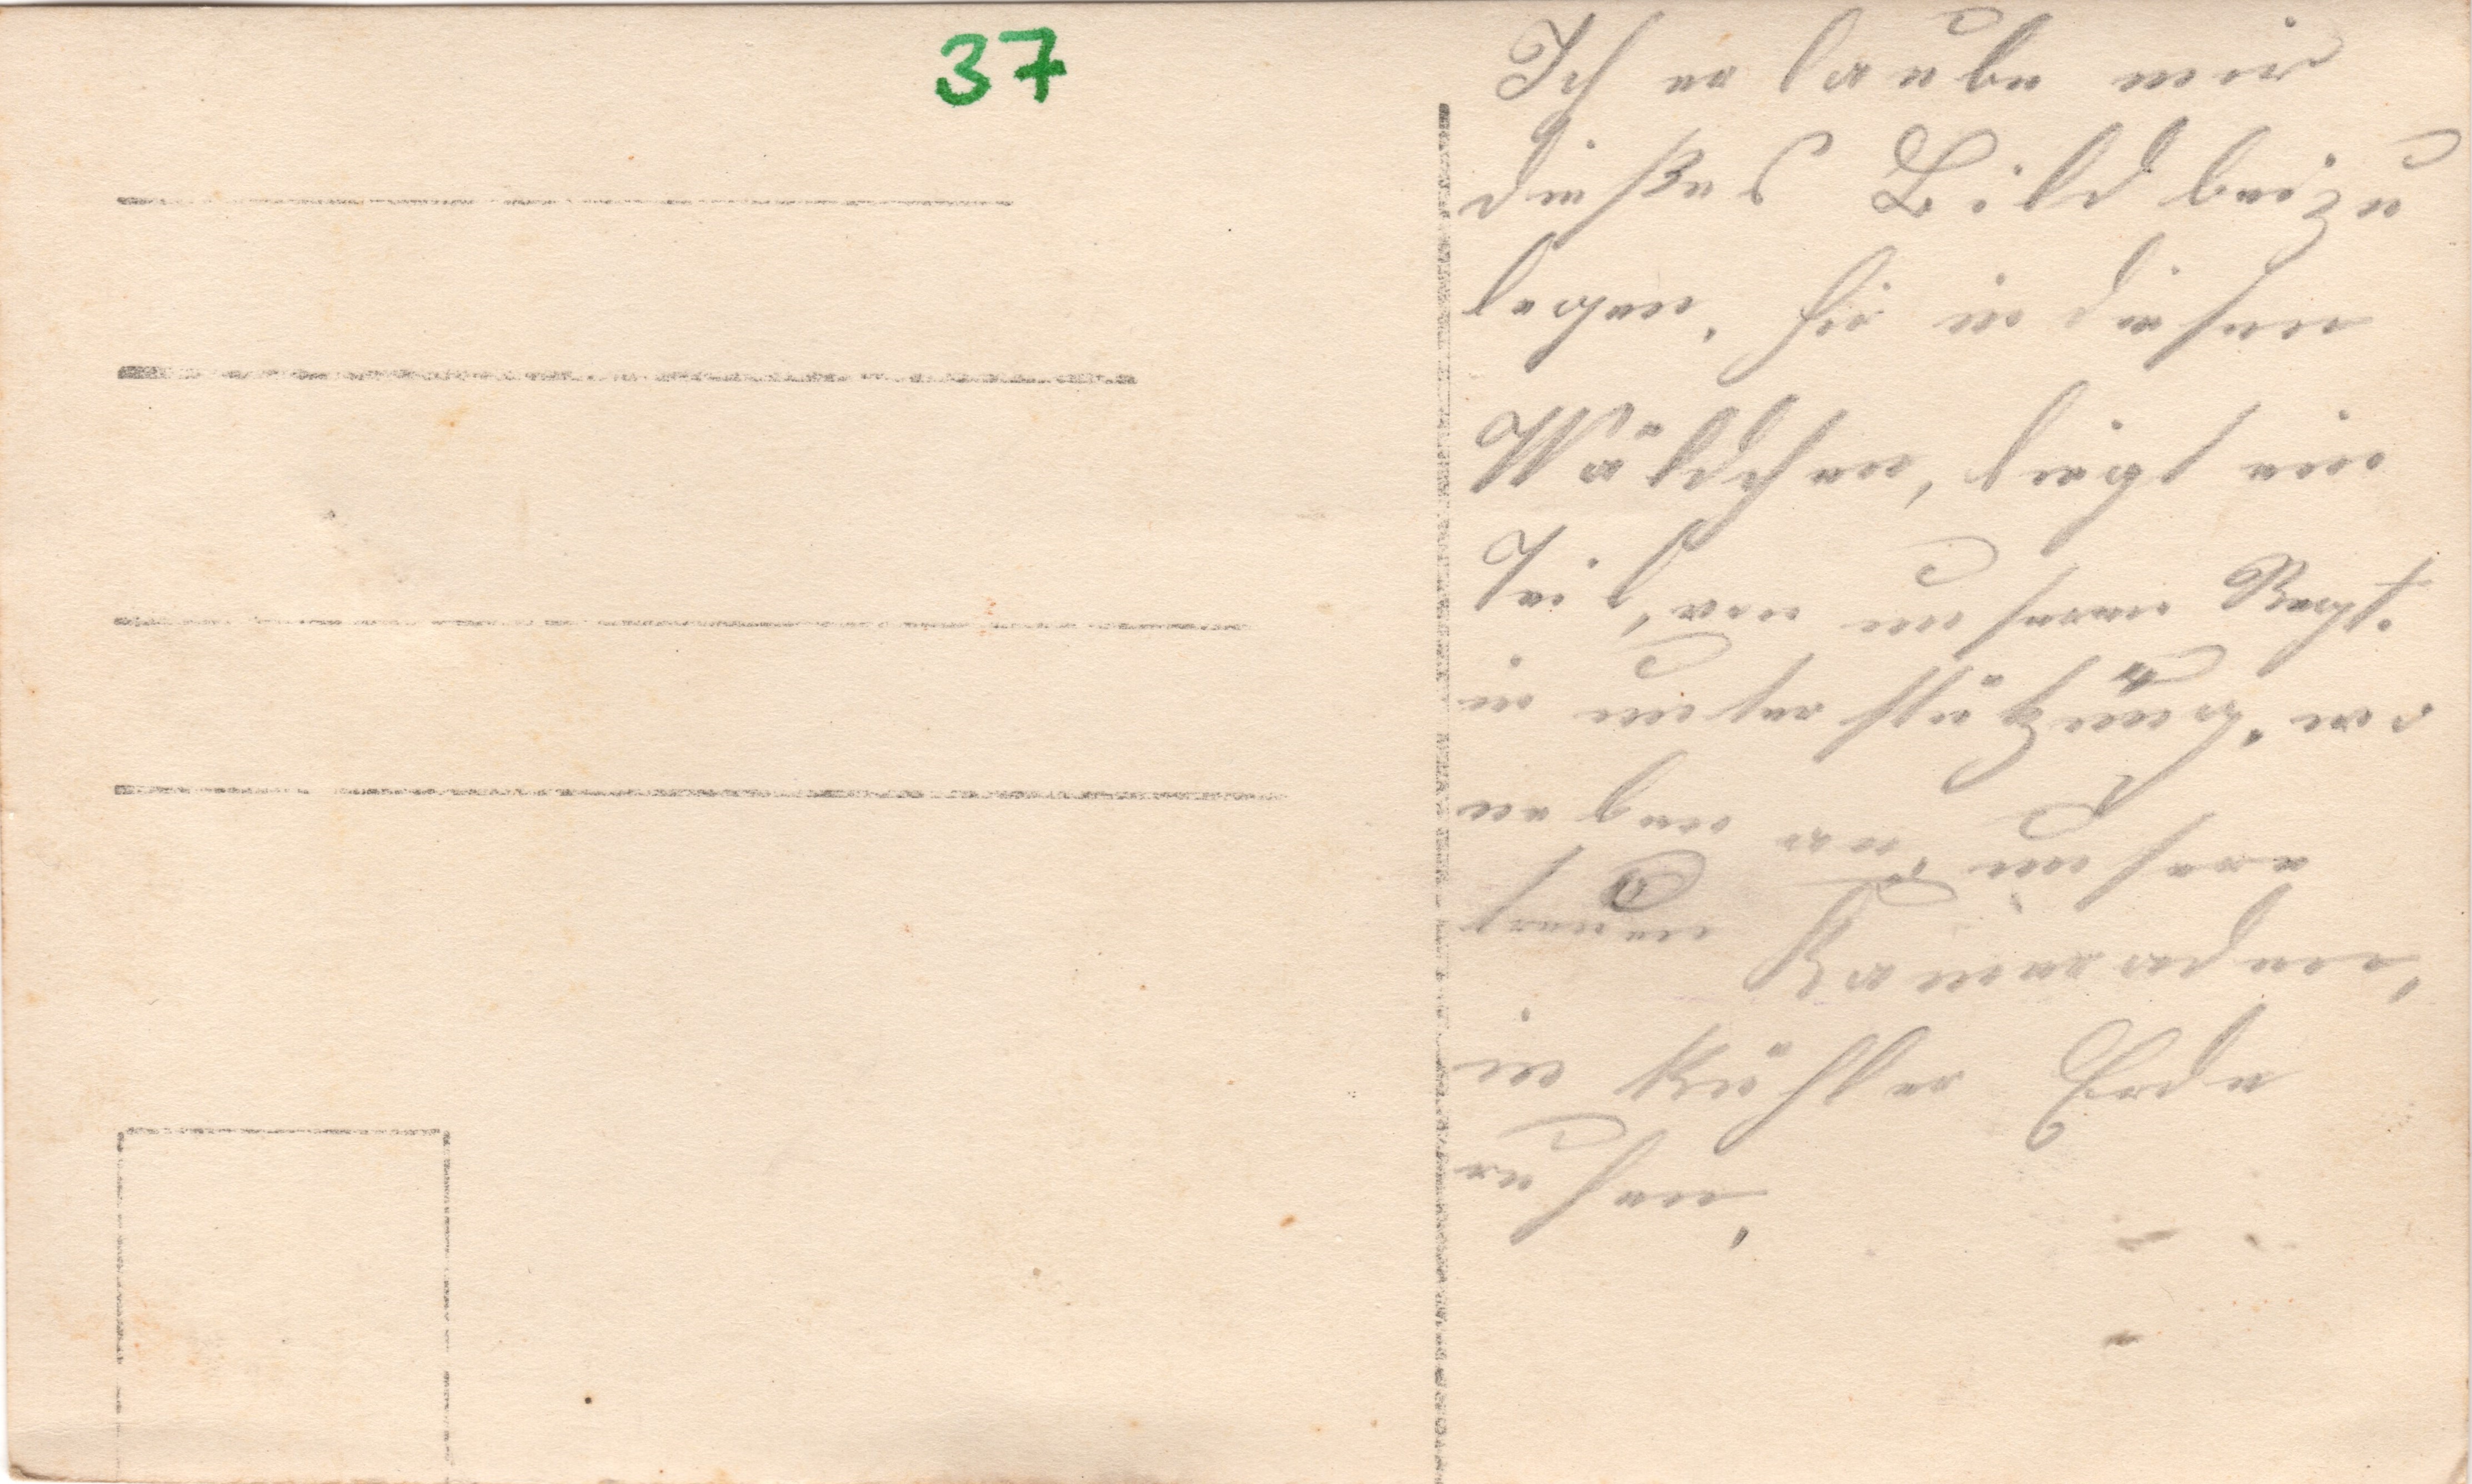 37
Ich erlaube mir
dießes Bild beizu
legen. hir in diesen
Wäldchen, liegt ein
Teil, von unseren Regt.
in unterstützung. wo
neben an, unsere
teueren Kameraden,
in kühler Erde
ruhen,